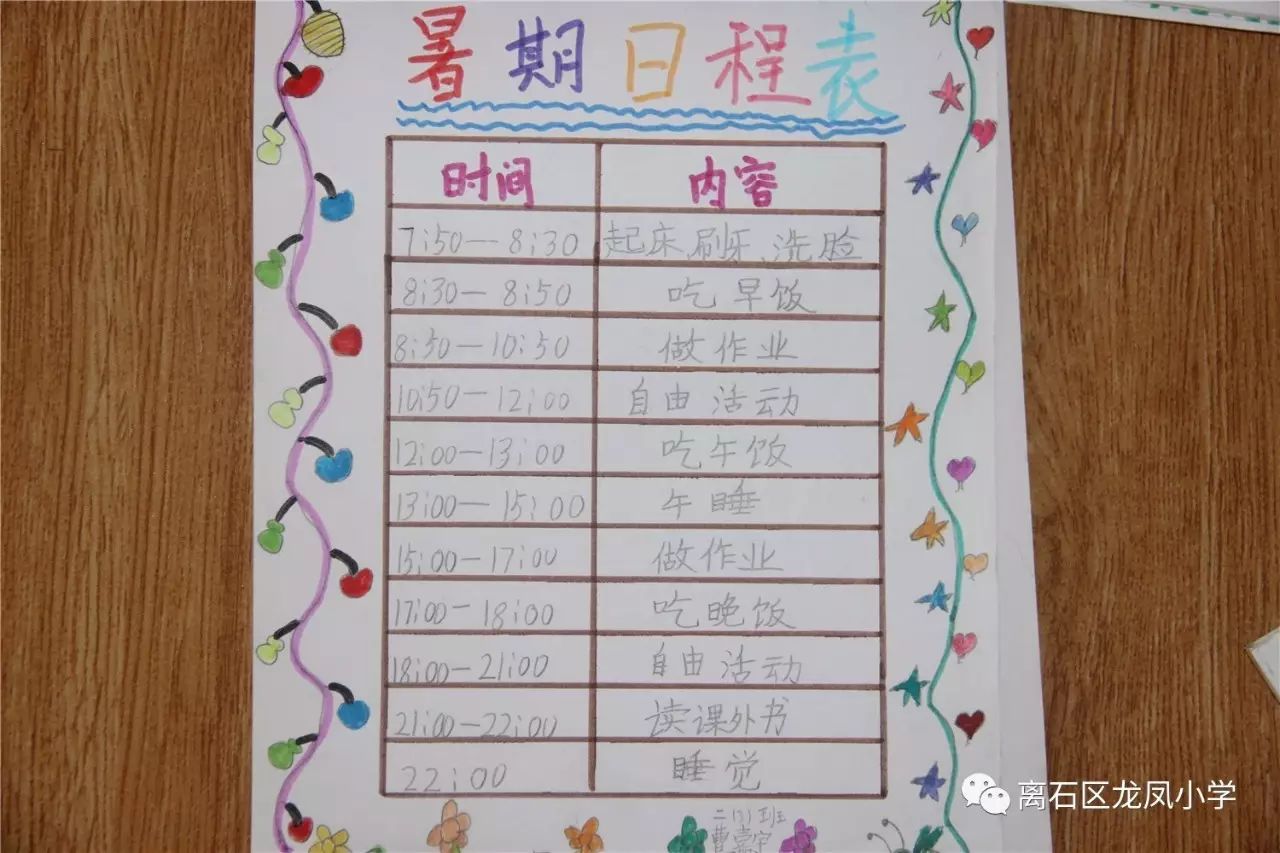 暑期日程表
时间 内容
7:50—8:30 起床、刷牙、洗脸
8:30—8:50 吃早饭
8:50—10:50 做作业
10:50—12:00 自由活动
12:00—13:00 吃午饭
13:00—15:00 午睡
15:00—17:00 做作业
17:00—18:00 吃晚饭
18:00—21:00 自由活动
21:00—22:00 读课外书
22:00 睡觉
离石区龙凤小学